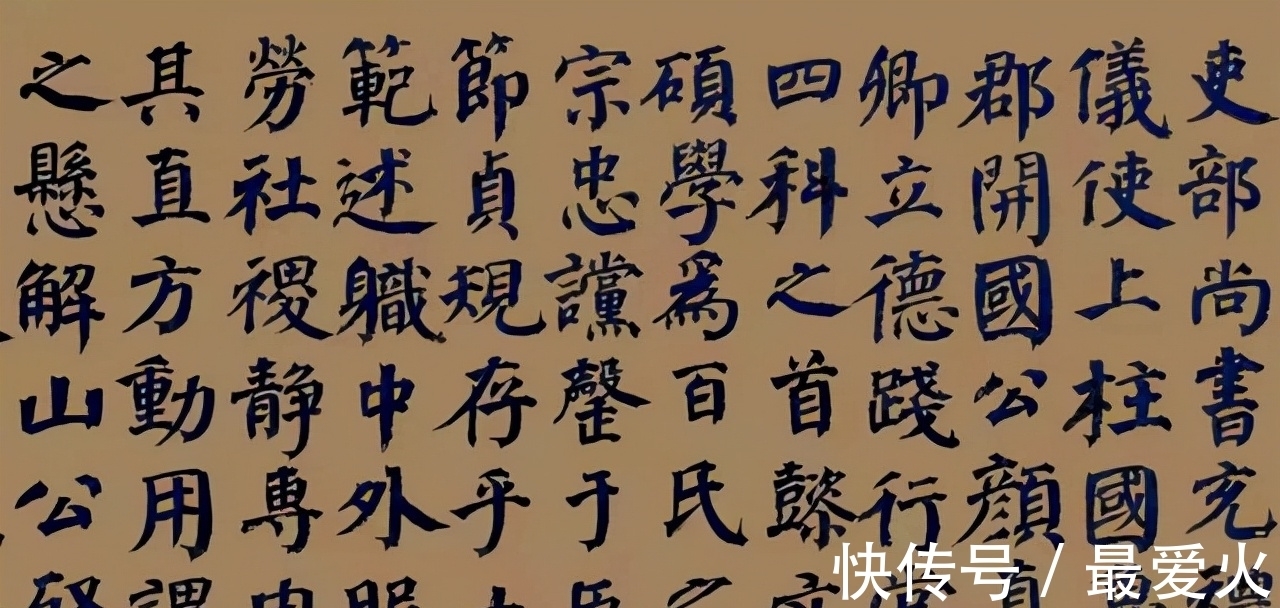 吏部尚書充
儀使上柱國
郡開國公顏真
卿立德踐行
四科之首懿文
碩學為百氏之
宗忠讜罄于臣
節貞規存乎
範述職中外服
勞社稷静專
其直方動用謂
之懸解山公
快传号 / 最爱火